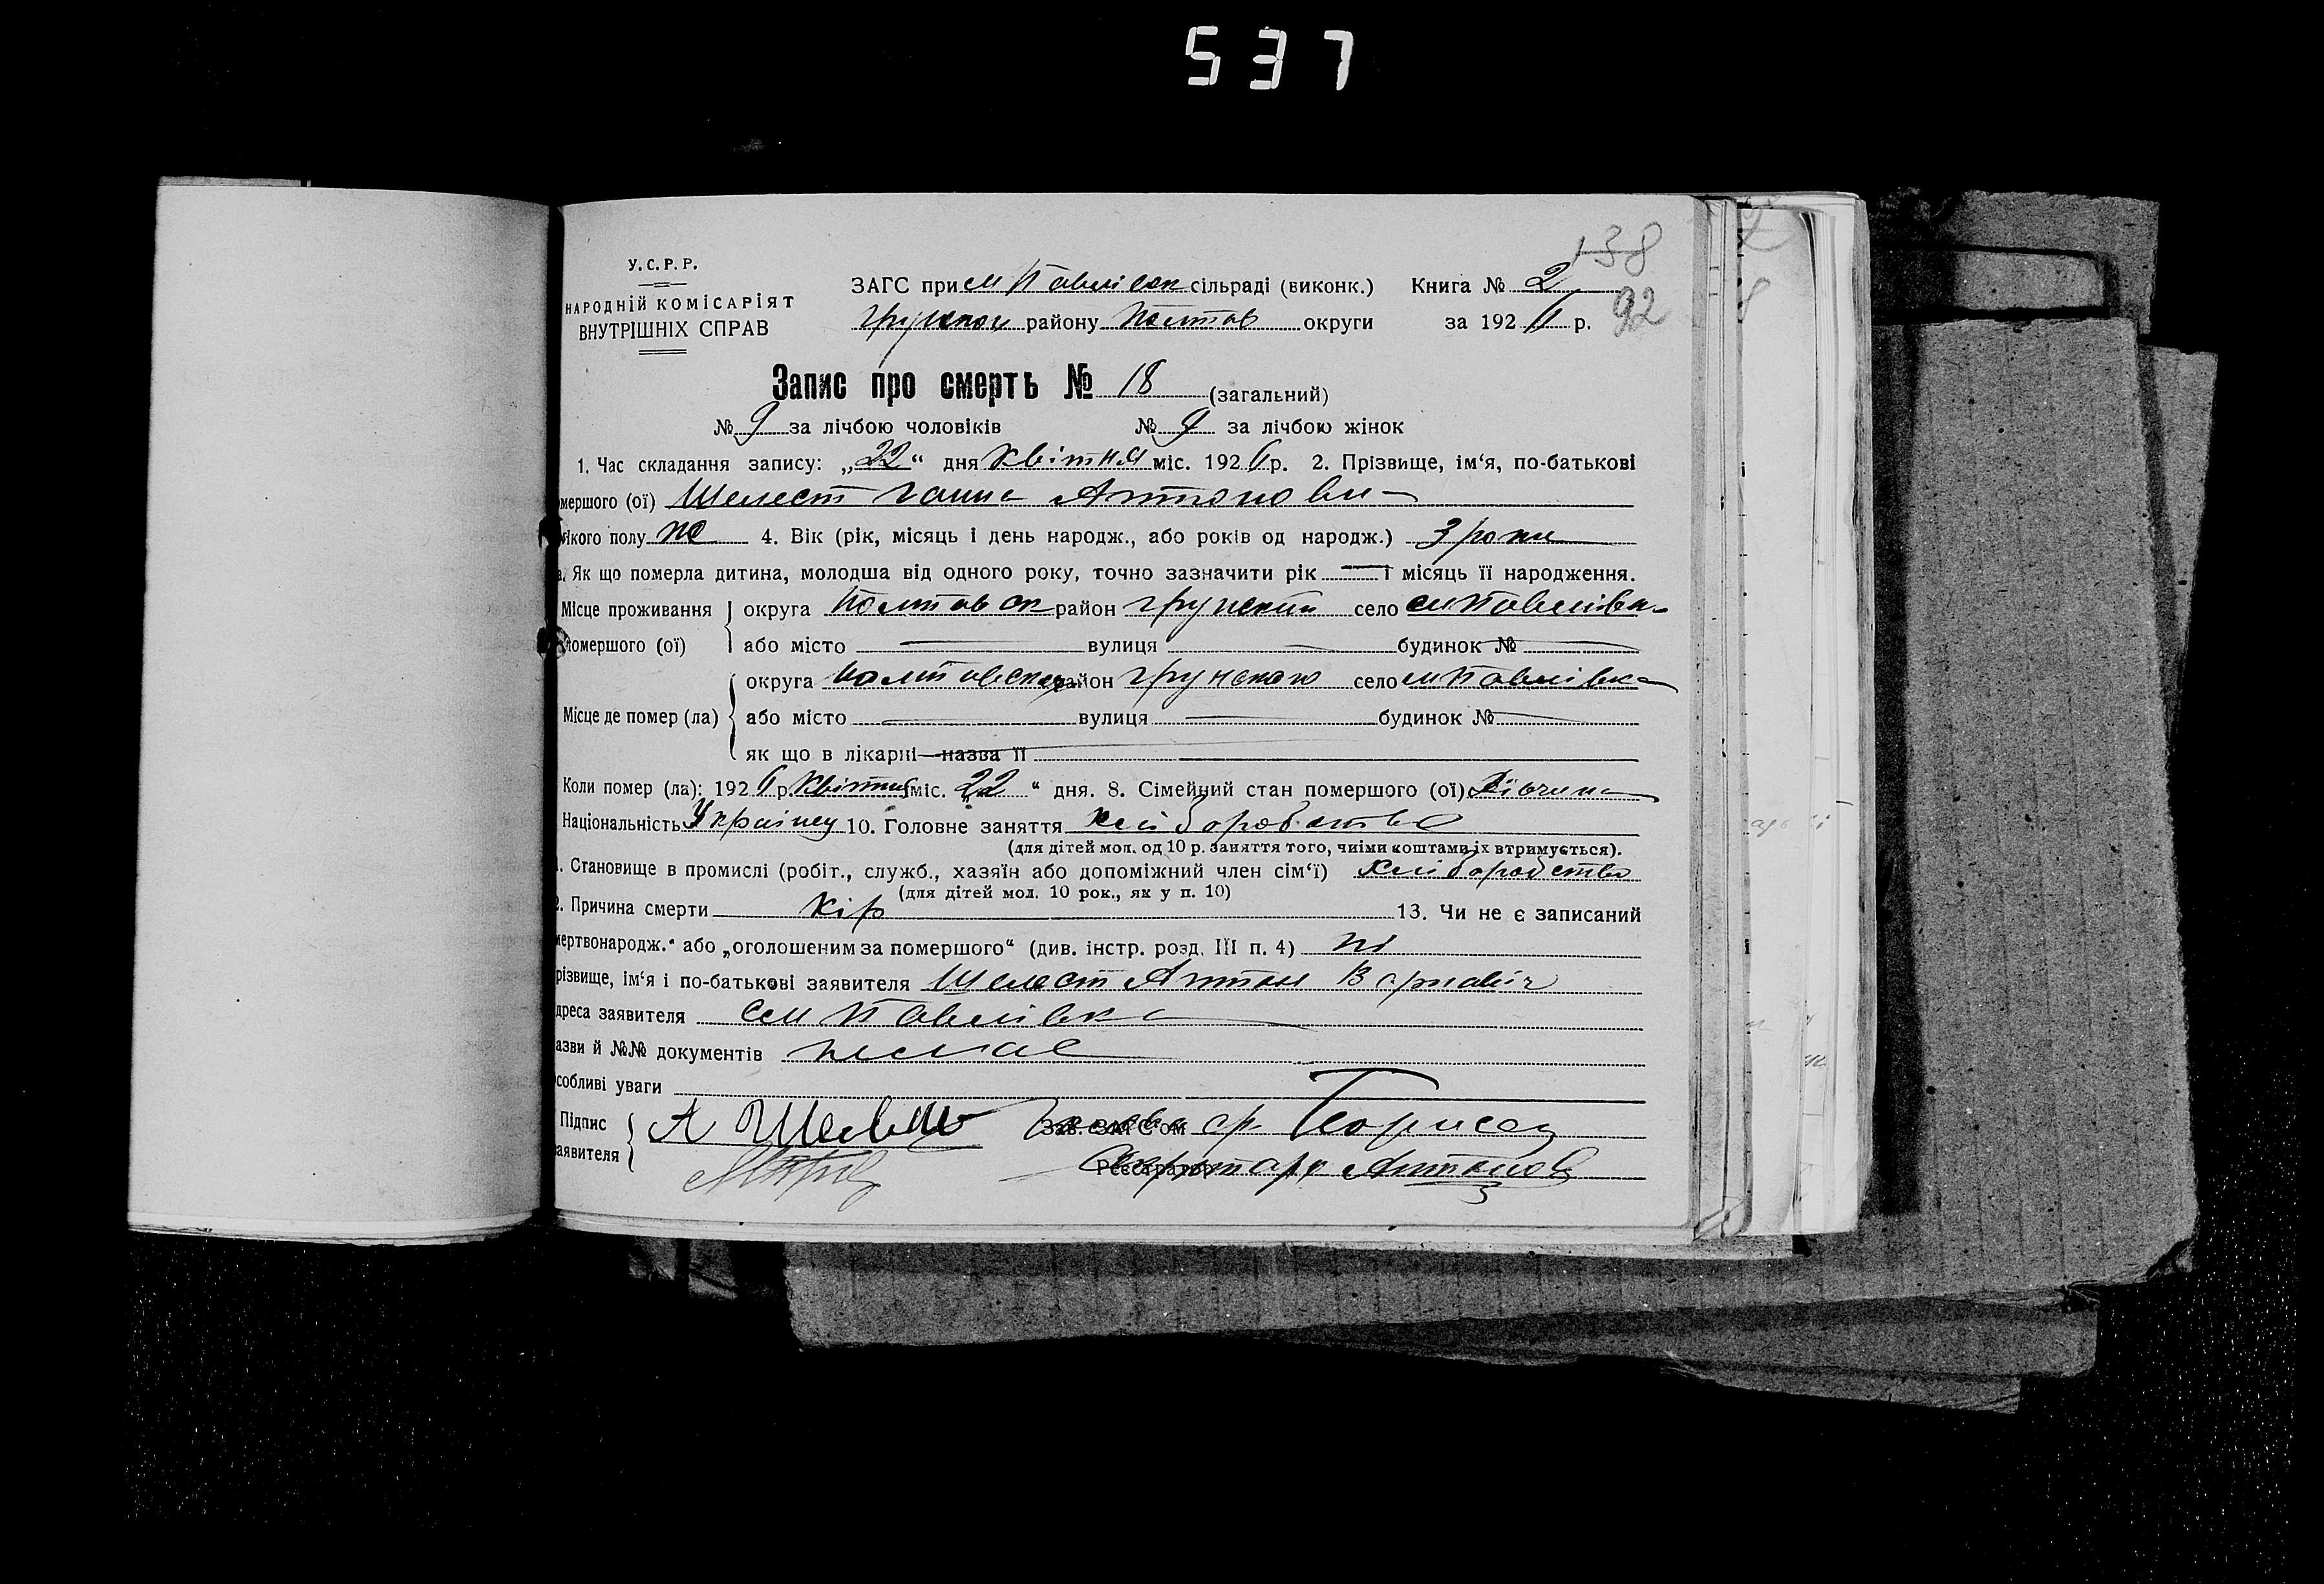 537
138
У.С.Р.Р.
НАРОДНІЙ КОМІСАРІЯТ
ВНУТРІШНІХ СПРАВ
ЗАГС при см Павлівск сільраді (виконк.) Книга № 2
Грунског району Полтав округи за 192 6 р.
92
Запис про смерть № 18 (загальний)
№ 9 за лічбою чоловіків № 9 за лічбою жінок
1. Час складання запису: „22“ дня Квітня міс. 1926 р. 2. Прізвище, ім‘я, по-батькові
мершого (ої) Шелест Ганна Антоновна
Якого полу ж 4. Вік (рік, місяць і день народж., або років од народж.) 3 роки
а. Як що померла дитина, молодша від одного року, точно зазначити рік — і місяць її народження.
Місце проживання округа Полтавск район Грунский село см Павлівка
помершого (ої) або місто — вулиця — будинок № —
округа Полтавског район Грунског село см Павлівка
Місце де помер (ла) або місто — вулиця — будинок № —
як що в лікарні—назва її
Коли помер (ла): 1926 р. Квітня міс. „22“ дня. 8. Сімейний стан помершого (ої) Дівчина
Національність Украінец 10. Головне заняття хліборобство
(для дітей мол. од 10 р. заняття того, чиїми коштами їх втримується).
1. Становище в промислі (робіт., служб., хазяїн або допоміжний член сім‘ї) хліборобство
(для дітей мол. 10 рок., як у п. 10)
2. Причина смерти Кір 13. Чи не є записаний
мертвонародж.“ або „оголошеним за помершого“ (див. інстр. розд. III п. 4) ні
різвище, ім‘я і по-батькові заявителя Шелест Антон Варнавіч
дреса заявителя см Павлівка
азви й №№ документів немає
собливі уваги
Підпис А Шелест Зав. ЗАГС‘ом Голова ср
аявителя Реєстратор Секретарь Антонов